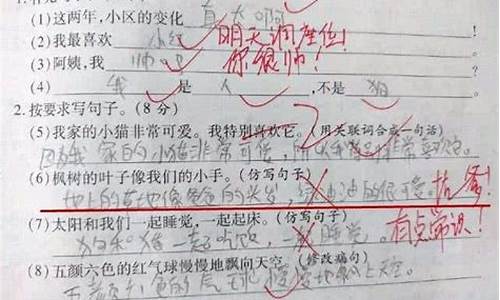 (1)这两年,小区的变化 真大啊
(2)我最喜欢 小红 明天调座位!
(3)阿姨,我 帅吧 你很帅!
(4) 我 是 人 ,不是 狗
2.按要求写句子。(8分)
(5)我家的小猫非常可爱。我特别喜欢它。(用关联词合成一句话)
因为我家的小猫非常可爱,所以我非常喜欢它。
(6)枫树的叶子像我们的小手。(仿写句子)
地上的草地像爸爸的头发,绿油油的很可爱。
(7)太阳和我们一起睡觉,一起起床。(仿写句子)
狗和猪一起吃饭,一起睡觉。 有点常识!
(8)五颜六色的红气球慢慢地飘向天空。(修改病句)
五颜六色的气球慢慢地飘上天空。